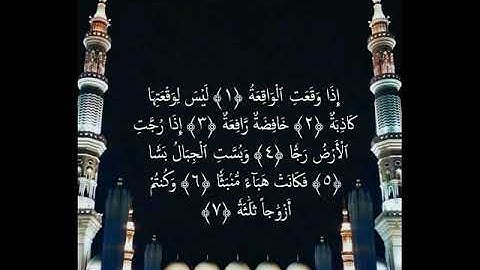 إِذَا وَقَعَتِ ٱلْوَاقِعَةُ ﴿١﴾ لَيْسَ لِوَقْعَتِهَا
كَاذِبَةٌ ﴿٢﴾ خَافِضَةٌ رَّافِعَةٌ ﴿٣﴾ إِذَا رُجَّتِ
ٱلْأَرْضُ رَجًّا ﴿٤﴾ وَبُسَّتِ ٱلْجِبَالُ بَسًّا
﴿٥﴾ فَكَانَتْ هَبَآءً مُّنۢبَثًّا ﴿٦﴾ وَكُنتُمْ
أَزْوَٰجًا ثَلَٰثَةً ﴿٧﴾